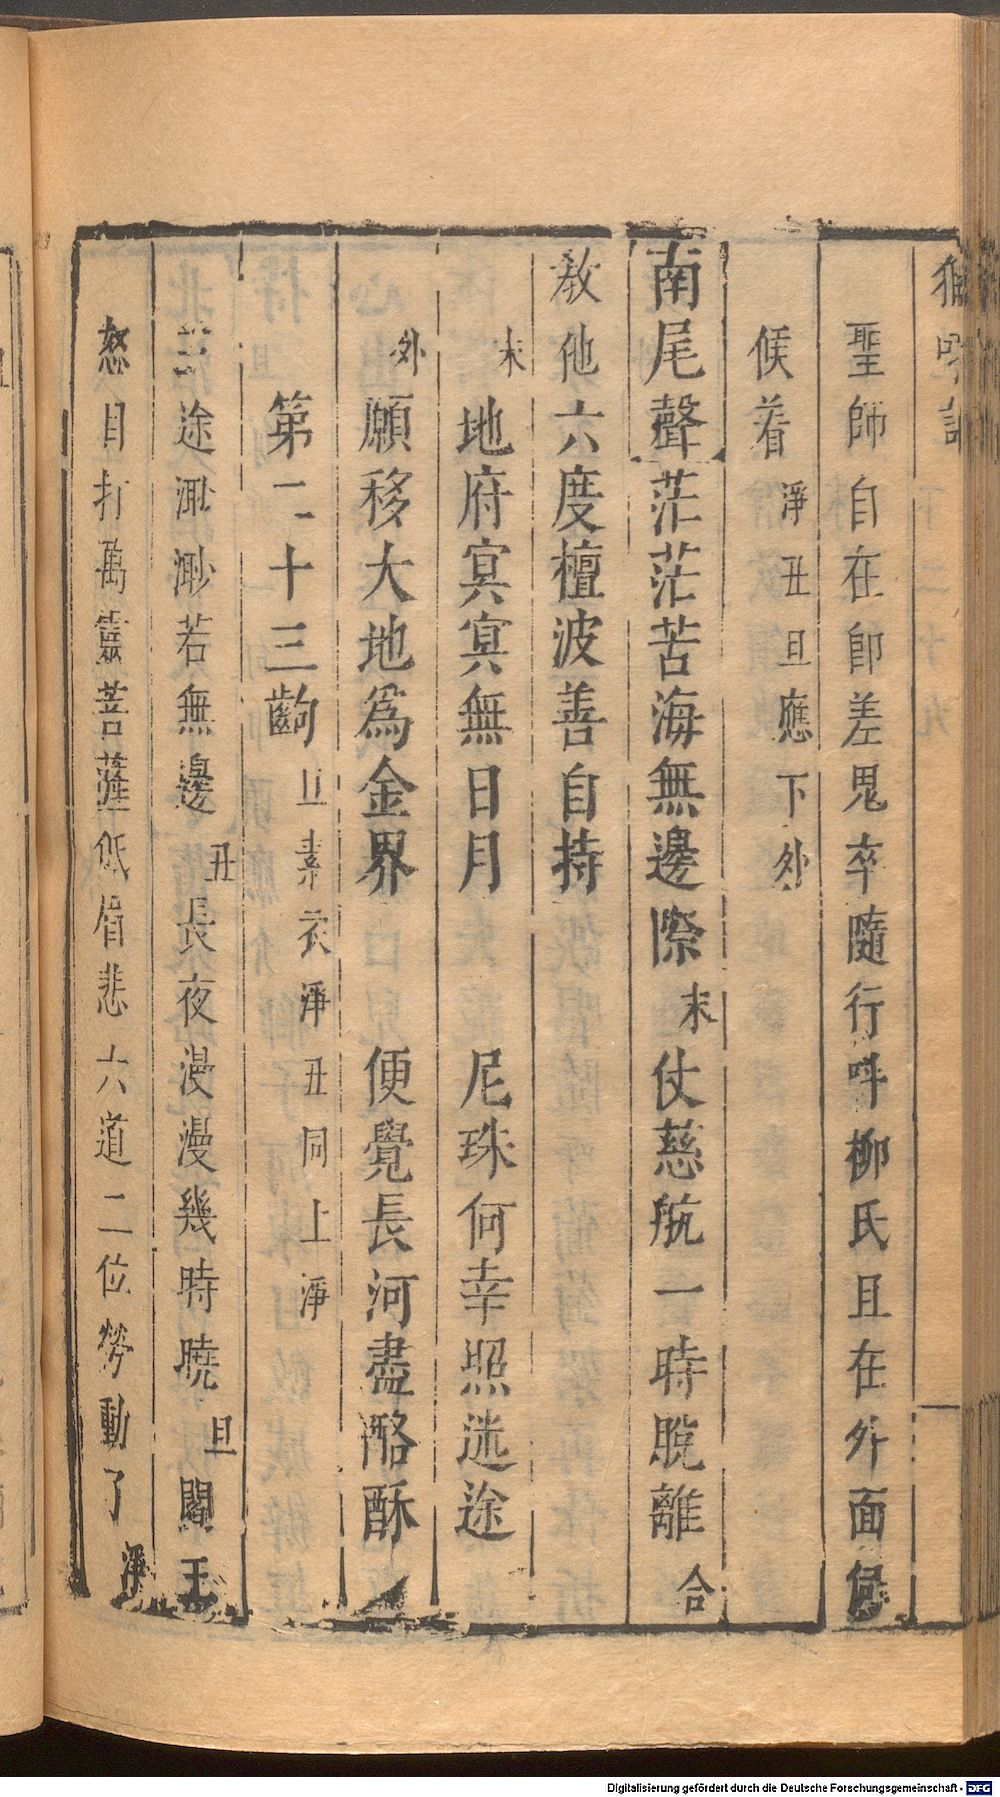 聖師自在卽差鬼卒隨行呼柳氏且在外面伺
候着淨丑旦應下外
南尾聲茫茫苦海無邊際末仗慈航一時脫離合
教他六度檀波善自持
末地府冥冥無日月 尼珠何幸照迷途
外願移大地爲金界 便覺長河盡酪酥
第二十三齣旦素衣淨丑同上淨
三途渺渺若無邊丑長夜漫漫幾時曉旦閻王
怒目打萬靈菩薩低眉悲六道二位勞動了淨
Digitalisierung gefördert durch die Deutsche Forschungsgemeinschaft - DFG